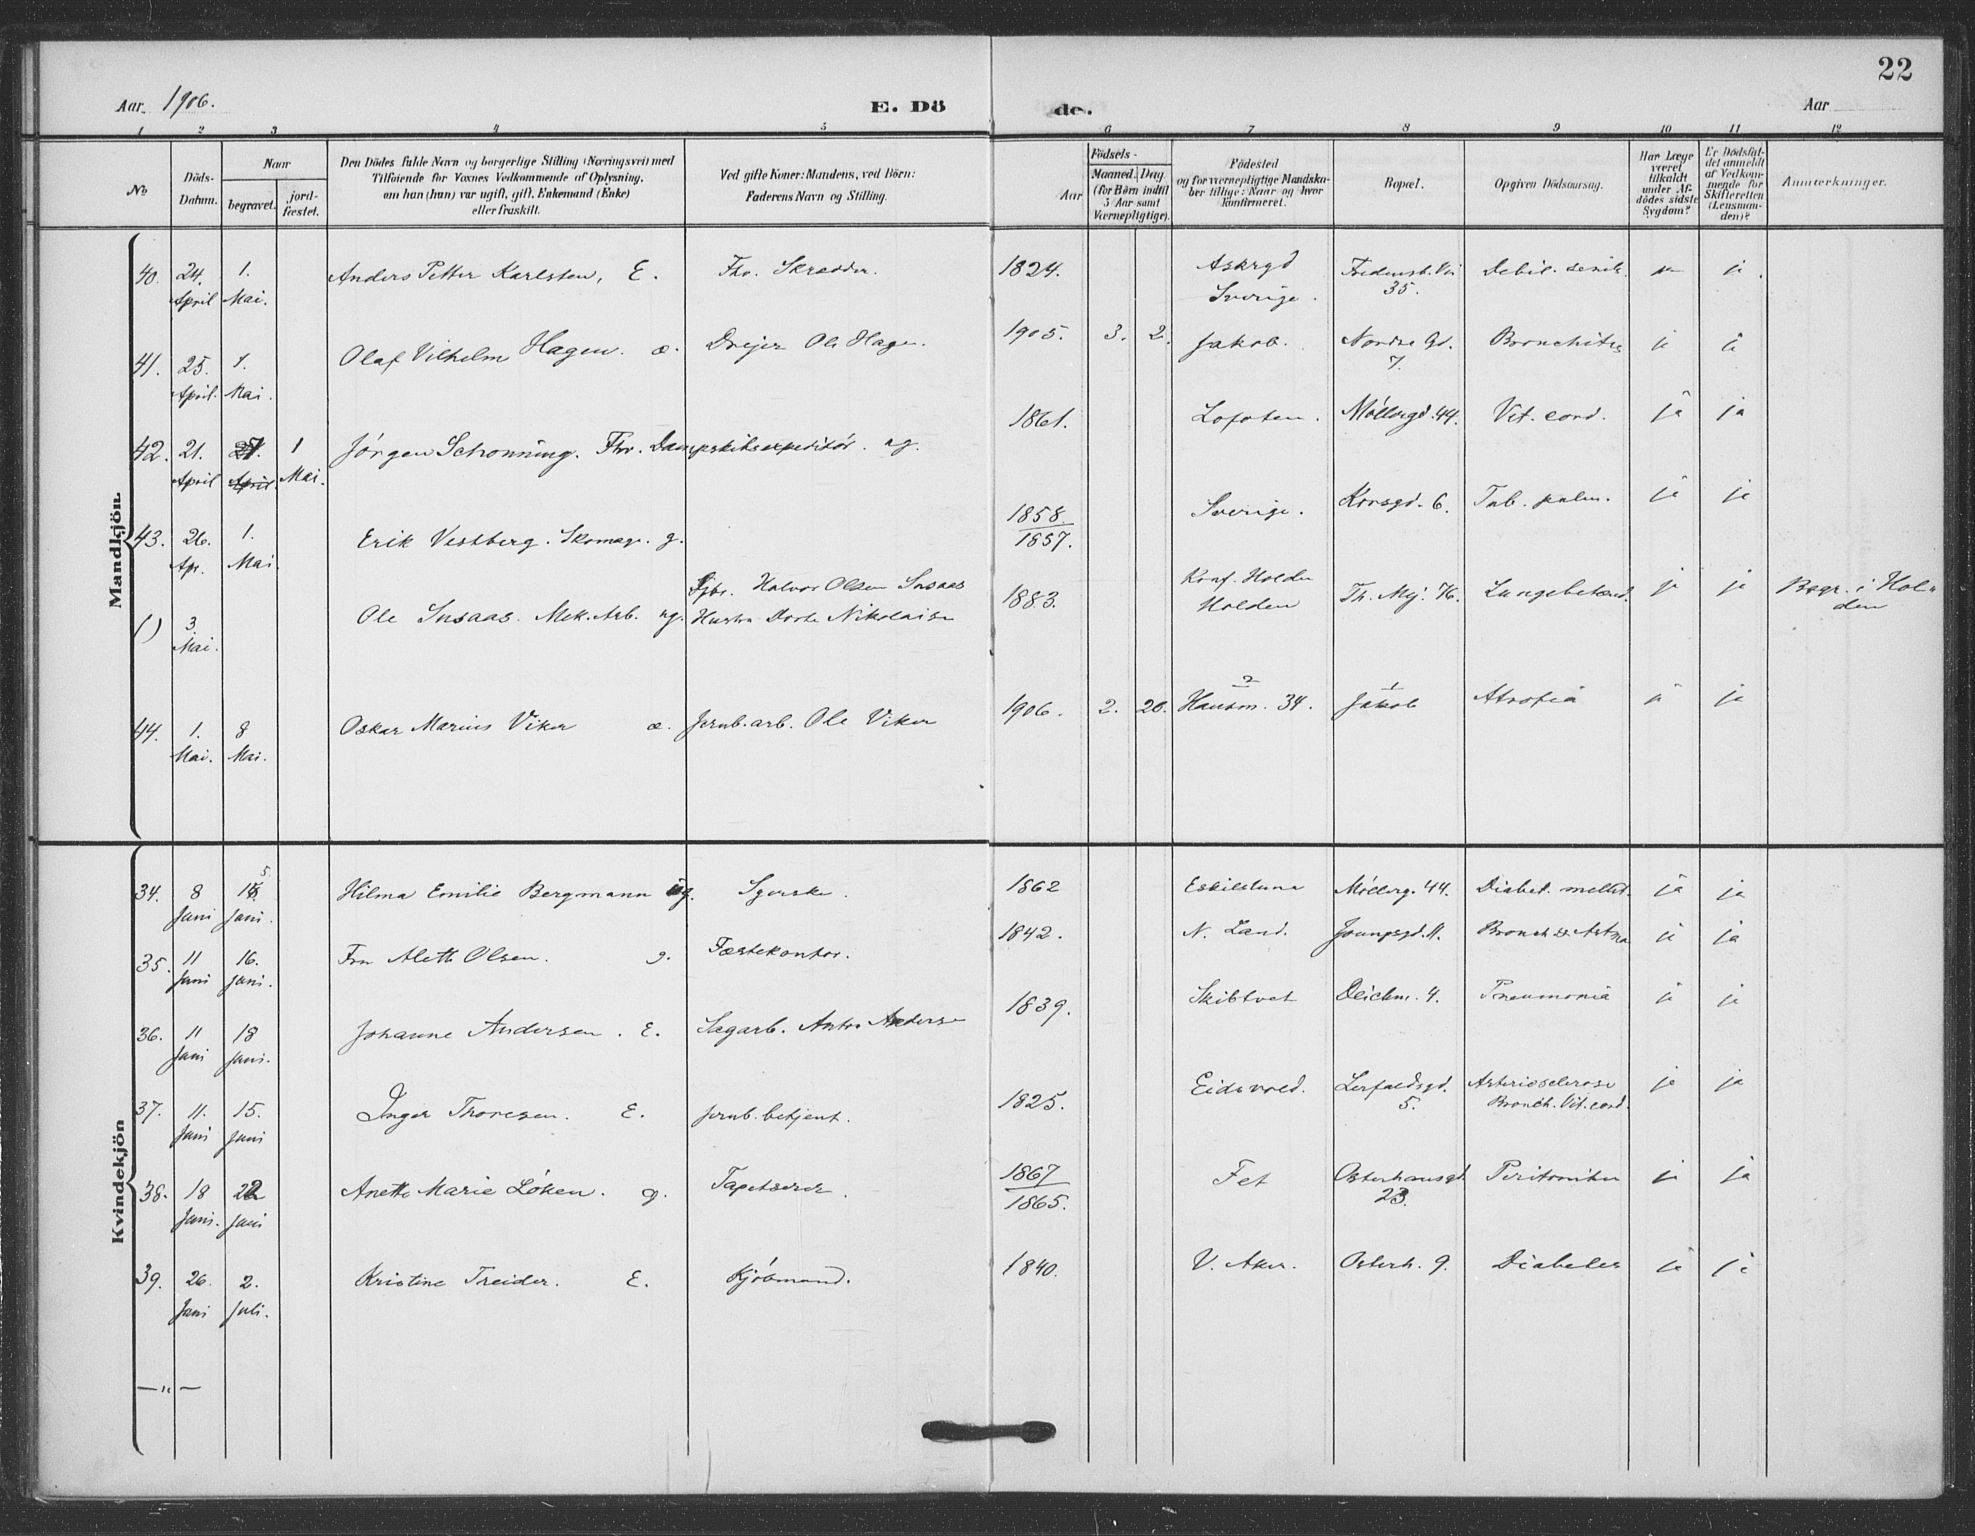 22
Aar 1906.
E. Döde.
Aar
1 2 3 4 5 6 7 8 9 10 11 12
No
Döds-Datum.
Naar
begravet.
jordfæstet.
Den Dödes fulde Navn og borgerlige Stilling (Næringsvei) med
Tilföiende for Voxnes Vedkommende af Oplysning,
om han (hun) var ugift, gift, Enkemand (Enke)
eller fraskilt.
Ved gifte Koner: Mandens, ved Börn:
Faderens Navn og Stilling.
Födsels-
Aar
Maaned. Dag.
(for Börn indtil
5 Aar samt
Værnepligtige).
Födested
og for værnepligtige Mandskaber tillige: Naar og hvor
konfirmeret.
Bopæl.
Opgiven Dödsaarsag.
Har Læge
været
tilkaldt
under Afdödes sidste
Sygdom?
Er Dödsfaldet anmeldt
af Vedkommende for
Skifteretten
(Lensmanden)?
Anmærkninger.
Mandkjön.
40. 24. April 1. Mai. Anders Petter Karlsten, E. Fhv. Skrædder. 1824. Sverige. Fredensb. Vei 35. Debil. senil. ja.
41. 25. April. 1. Mai. Olaf Vilhelm Hagen. æ. Drejer Ole Hagen. 1905. 3. 2. Jakob. Nordre Gd. 7. Bronchites ja ja
42. 21. April 27. April. 1 Mai. Jörgen Schonning. Fhv. Dampskibsexpeditör. ug. 1861. Lofoten. Möllergd. 44. Vit. cord. ja ja
43. 26. Apr. 1. Mai. Erik Vestberg. Skomag. g. 1858. 1857. Sverige. Korsgd. 6. Tub. pulm. ja ja
( ) 3 Mai. Ole Insaas. Mek. Arb. ug. Halvor Olsen Insaas
Hustru Dorte Nikolaisn 1883. Konf. Holden
Holden Th. Mj. 76. Lungebetænd. ja ja Begr. i Holden
44. 1. Mai. 8 Mai. Oskar Marius Viker æ. Jernb. arb. Ole Viker 1906. 2. 20. Hausm. 34. 2 Jakob 1 Atrofia ja ja
Kvindekjön
34. 8 Juni 15 Juni. Hilma Emilie Bergmann ug. Syerske. 1862 Eskilstuna Möllerg. 44. Diabet. mellit. ja ja
35. 11 Juni 16. Juni. Fru Aleth Olsen. g. Fæstekontor. 1842. N. Land. Youngsgd. 11. Bronch. & Astma ja ja
36. 11 Juni 18 Juni. Johanne Andersen. E. Sagarb. Anton Andersn 1839. Skibtvet Deichm. 4. Pneumonia ja ja
37. 11. Juni 15. Juni Inger Thoresen. E. Jernb. betjent. 1825. Eidsvold. Lerfaldsgd. 5. Arteriosclerose
Bronch. Vit. cord. ja ja
38. 18 Juni. 22 Juni Anette Marie Löken. g. Tapetserer. 1867 1865. Fet Osterhausgd. 23. Peritonites ja ja
39. 26. Juni 2. Juli. Kristine Treider. E. Kjöbmand. 1840. V. Aker. Osterh. 9. Diabetes ja ja
— " —